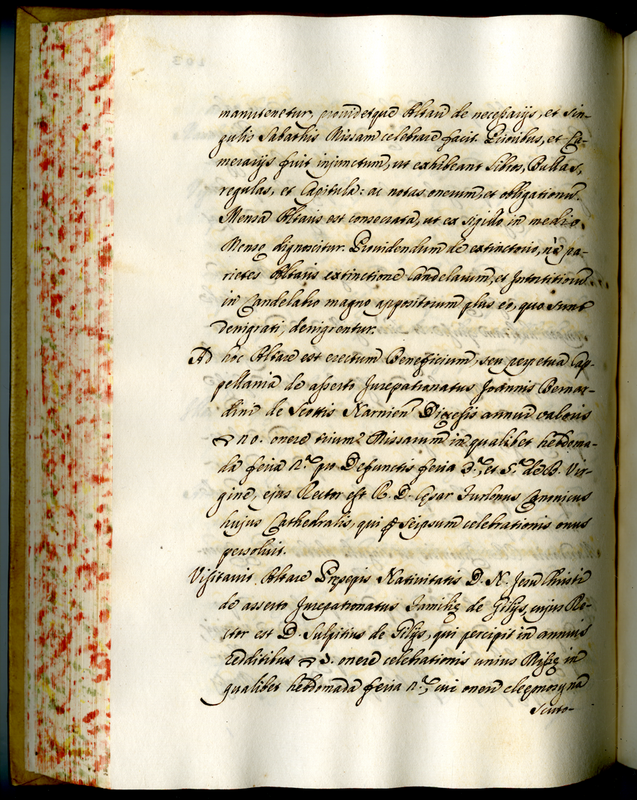 manutenetur, providetque Altari de necessarijs, et sin-
gulis Sabathis Missam celebrare facit. Prioribus, et Ca-
merarijs fuit injunctum, ut exhibeant Libros, Bullas,
regulas, et Capitula: ac notus onerum, et obligationum.
Mensa Altaris est consecrata, ut ex sigillo in medio
Mensę dignoscitur. Providendum de extinctorio, ne pa-
rietes Altaris extinctione Candelarum, et Intortitiorum
in Candelabro magno appositorum plus eo, quo sunt
denigrati, denigrentur.
Ad hoc Altare est erectum Beneficium, seu perpetua Cap-
pellania de asserto Jurepatronatus Joannis Bernar-
dini de Scottis Narnien Diocesis annui valoris
10. onere trium Missarum in qualibet hebdoma-
da feria 2.ª pro Defunctis feria 3.ª et 5.ª de B. Vir-
gine, ejus Rector est R. D. Cesar Canonicus
hujus Cathedralis, qui p seipsum celebrationis onus
persolvit.
Visitavit Altare Pręsepis Nativitatis D. N. Jesu Christi
de asserto Jurepatronatus Familię de Gilijs, cujus Re-
ctor est D. Sulpitius de Gilijs, qui percipit in annuis
redditibus 3. onere celebrationis unius Missę in
qualibet hebdomada feria 2.ª cui onere eleemosyna
Scuto-